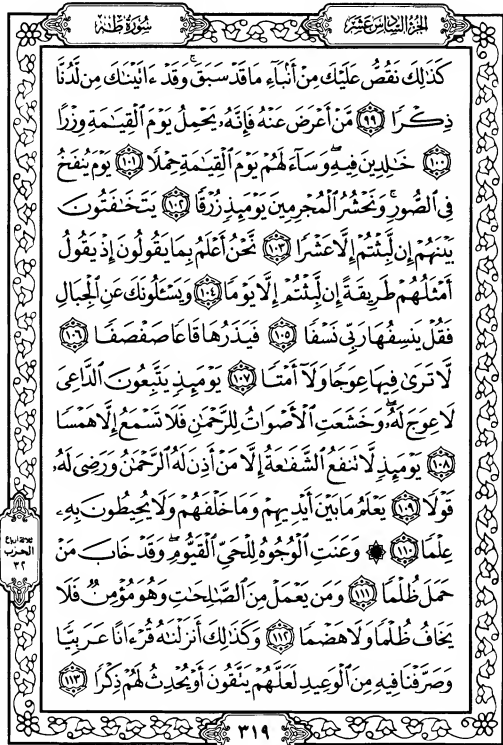 الجزء السادس عشر
سورة طه
كَذَٰلِكَ نَقُصُّ عَلَيْكَ مِنْ أَنۢبَآءِ مَا قَدْ سَبَقَۚ وَقَدْ ءَاتَيْنَٰكَ مِن لَّدُنَّا
ذِكْرًا ٩٩ مَّنْ أَعْرَضَ عَنْهُ فَإِنَّهُۥ يَحْمِلُ يَوْمَ ٱلْقِيَٰمَةِ وِزْرًا
١٠٠ خَٰلِدِينَ فِيهِۖ وَسَآءَ لَهُمْ يَوْمَ ٱلْقِيَٰمَةِ حِمْلًا ١٠١ يَوْمَ يُنفَخُ
فِى ٱلصُّورِۚ وَنَحْشُرُ ٱلْمُجْرِمِينَ يَوْمَئِذٍ زُرْقًا ١٠٢ يَتَخَٰفَتُونَ
بَيْنَهُمْ إِن لَّبِثْتُمْ إِلَّا عَشْرًا ١٠٣ نَّحْنُ أَعْلَمُ بِمَا يَقُولُونَ إِذْ يَقُولُ
أَمْثَلُهُمْ طَرِيقَةً إِن لَّبِثْتُمْ إِلَّا يَوْمًا ١٠٤ وَيَسْـَٔلُونَكَ عَنِ ٱلْجِبَالِ
فَقُلْ يَنسِفُهَا رَبِّى نَسْفًا ١٠٥ فَيَذَرُهَا قَاعًا صَفْصَفًا ١٠٦
لَّا تَرَىٰ فِيهَا عِوَجًا وَلَآ أَمْتًا ١٠٧ يَوْمَئِذٍ يَتَّبِعُونَ ٱلدَّاعِىَ
لَا عِوَجَ لَهُۥۖ وَخَشَعَتِ ٱلْأَصْوَاتُ لِلرَّحْمَٰنِ فَلَا تَسْمَعُ إِلَّا هَمْسًا
١٠٨ يَوْمَئِذٍ لَّا تَنفَعُ ٱلشَّفَٰعَةُ إِلَّا مَنْ أَذِنَ لَهُ ٱلرَّحْمَٰنُ وَرَضِىَ لَهُۥ
قَوْلًا ١٠٩ يَعْلَمُ مَا بَيْنَ أَيْدِيهِمْ وَمَا خَلْفَهُمْ وَلَا يُحِيطُونَ بِهِۦ
عِلْمًا ١١٠ ۞ وَعَنَتِ ٱلْوُجُوهُ لِلْحَىِّ ٱلْقَيُّومِۖ وَقَدْ خَابَ مَنْ
حَمَلَ ظُلْمًا ١١١ وَمَن يَعْمَلْ مِنَ ٱلصَّٰلِحَٰتِ وَهُوَ مُؤْمِنٌ فَلَا
يَخَافُ ظُلْمًا وَلَا هَضْمًا ١١٢ وَكَذَٰلِكَ أَنزَلْنَٰهُ قُرْءَانًا عَرَبِيًّا
وَصَرَّفْنَا فِيهِ مِنَ ٱلْوَعِيدِ لَعَلَّهُمْ يَتَّقُونَ أَوْ يُحْدِثُ لَهُمْ ذِكْرًا ١١٣
ثلاثة أرباع
الحزب
٣٢
٣١٩